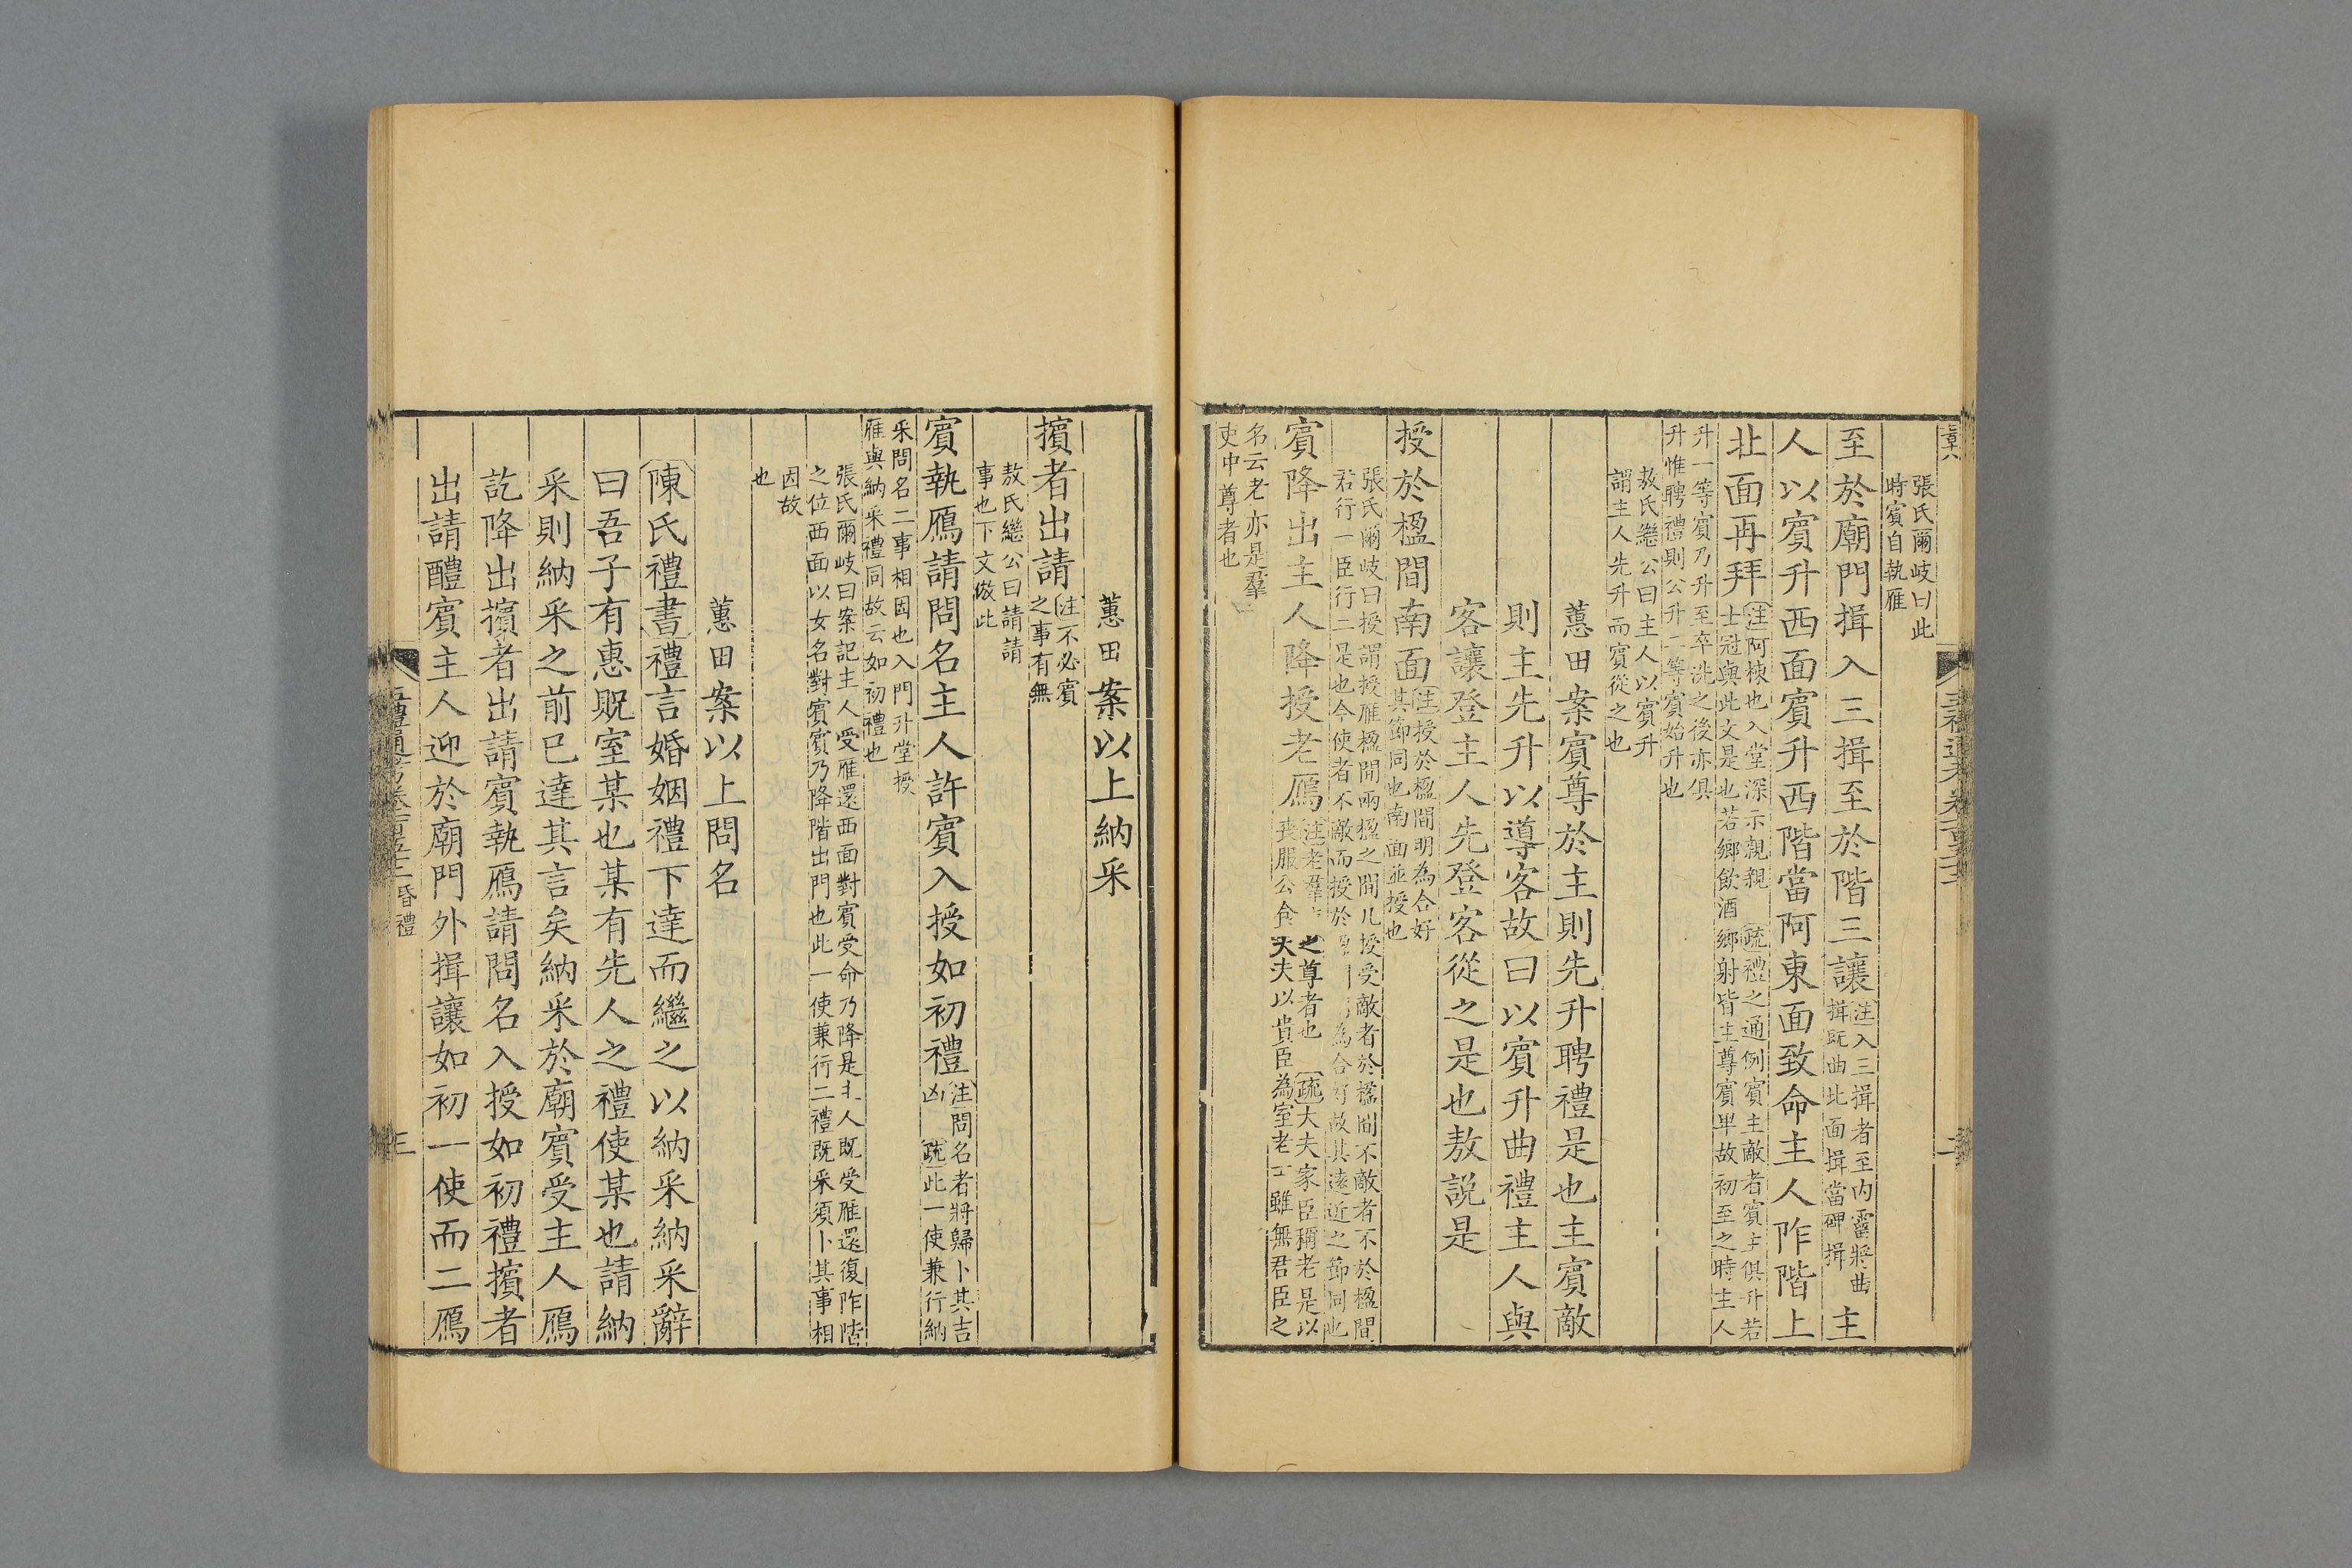 張氏爾岐曰此
時賓自執雁
至於廟門揖入三揖至於階三讓注入三揖者至内霤將曲
揖既曲北面揖當碑揖主
人以賓升西面賓升西階當阿東面致命主人阼階上
北面再拜注阿棟也入堂深示親親 疏禮之通例賓主敵者賓主俱升若
士冠與此文是也若鄉飲酒鄉射皆主尊賓卑故初至之時主人
升一等賓乃升至卒洗之後亦俱
升惟聘禮則公升二等賓始升也
敖氏繼公曰主人以賓升
謂主人先升而賓從之也
蕙田案賓尊於主則先升聘禮是也主賓敵
則主先升以導客故曰以賓升曲禮主人與
客讓登主人先登客從之是也敖説是
授於楹間南面注授於楹間明為合好
其節同也南面並授也
張氏爾岐曰授謂授雁楹間兩楹之間凡授受敵者於楹間不敵者不於楹間
君行一臣行二是也今使者不敵而授於為合好故其遠近之節同也
賓降出主人降授老鴈注老羣之尊者也 疏大夫家臣稱老是以
喪服公食大夫以貴臣為室老士雖無君臣之
名云老亦是羣
吏中尊者也
蕙田案以上納采
擯者出請注不必賓
之事有無
敖氏繼公曰請請
事也下文倣此
賓執鴈請問名主人許賓入授如初禮注問名者將歸卜其吉
凶 疏此一使兼行納
采問名二事相因也入門升堂授
雁與納采禮同故云如初禮也
張氏爾岐曰案記主人受雁還西面對賓受命乃降是主人既受雁還復阼階
之位西面以女名對賓賓乃降階出門也此一使兼行二禮既采須卜其事相
因故
也
蕙田案以上問名
陳氏禮書禮言婚姻禮下達而繼之以納采納采辭
曰吾子有惠貺室某也某有先人之禮使某也請納
采則納采之前已達其言矣納采於廟賓受主人鴈
訖降出擯者出請賓執鴈請問名入授如初禮擯者
出請醴賓主人迎於廟門外揖讓如初一使而二鴈